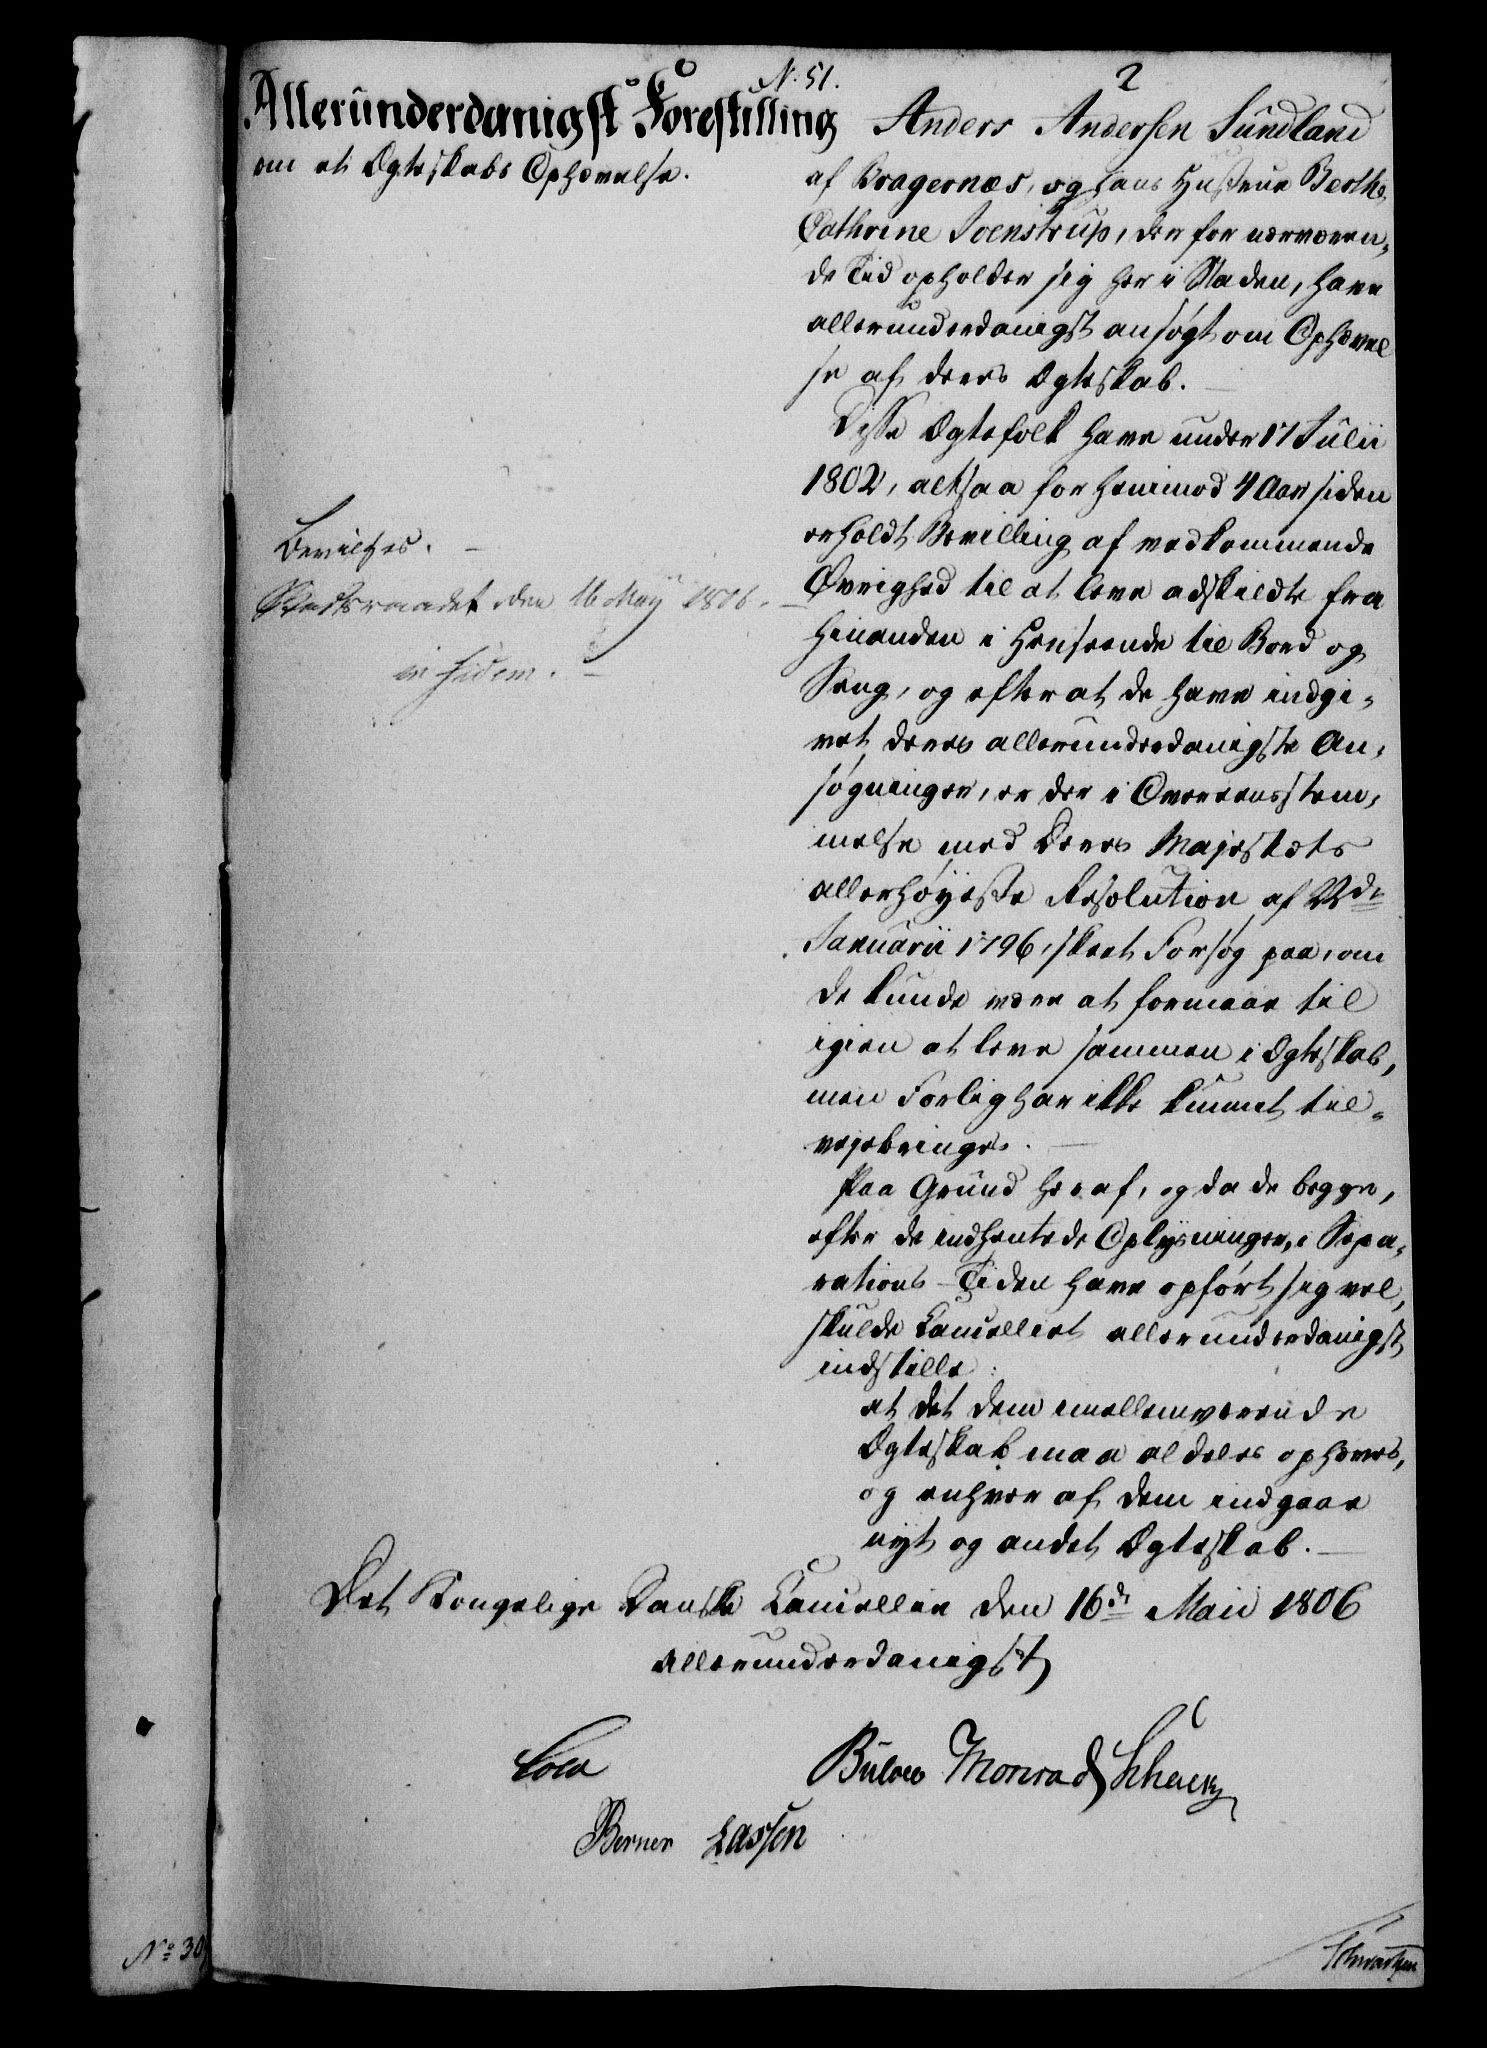 N. 51.
2
Allerunderdanigst Forestilling
om et Ægteskabs Ophævelse.
Anders Andersen Sundland
af Bragernæs, og hans Hustrue Berthe
Cathrine Joenstrup, der for nærværen„
de Tid opholder sig her i Staden, have
allerunderdanigst ansøgt om Ophævel
se af deres Ægteskab.
Disse Ægtefolk have under 17 Julii
1802, altsaa for henimod 4 Aar siden
erholdt Bevilling af vedkommende
Øvrighed til at leve adskildte fra
hinanden i Henseende til Bord og
Seng, og efter at de have indgi„
vet deres allerunderdanigste An„
søgninger, er der i Overeensstem„
melse med Deres Majestæts
allerhøyeste Resolution af
Januarii 1796, skeet Forsøg paa, om
de kunde være at formaae til
igien at leve sammen i Ægteskab,
men Forlig har ikke kunnet til„
vejebringes.
Paa Grund heraf, og da de begge,
efter de indhentede Oplysninger, i Sepa„
rations-Tiden have opført sig vel,
skulde Cancelliet allerunderdanigst
indstille:
at det dem imellemværende
Ægteskab maa aldeles ophæves,
og enhver af dem indgaae
nyt og andet Ægteskab.
Bevilges.
Statsraadet den 16 May 1806.
in fidem.
Det Kongelige Danske Cancellie den 16de Maii 1806
allerunderdanigst
Cold
Bülow Monrad Schack
Berner Lassen
No 30